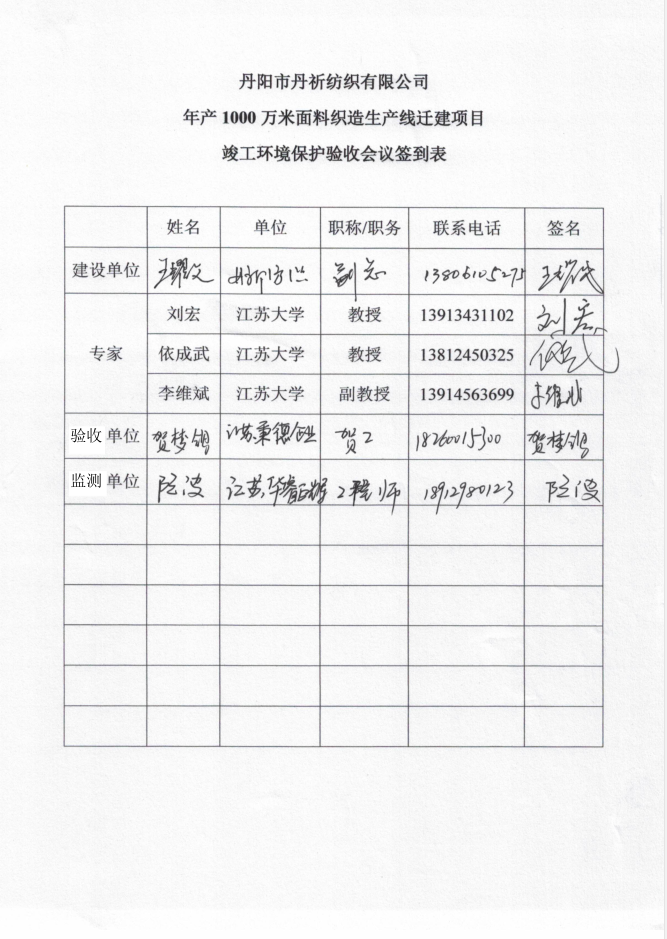 丹阳市丹祈纺织有限公司
年产 1000 万米面料织造生产线迁建项目
竣工环境保护验收会议签到表
姓名 单位 职称/职务 联系电话 签名
建设单位 副总 13806105275
专家
刘宏 江苏大学 教授 13913431102 刘宏
依成武 江苏大学 教授 13812450325
李维斌 江苏大学 副教授 13914563699 李维斌
验收 单位 贺梦 江苏秉德 贺工 18260015300 贺梦
监测 单位 江苏华睿 工程师 18912980123